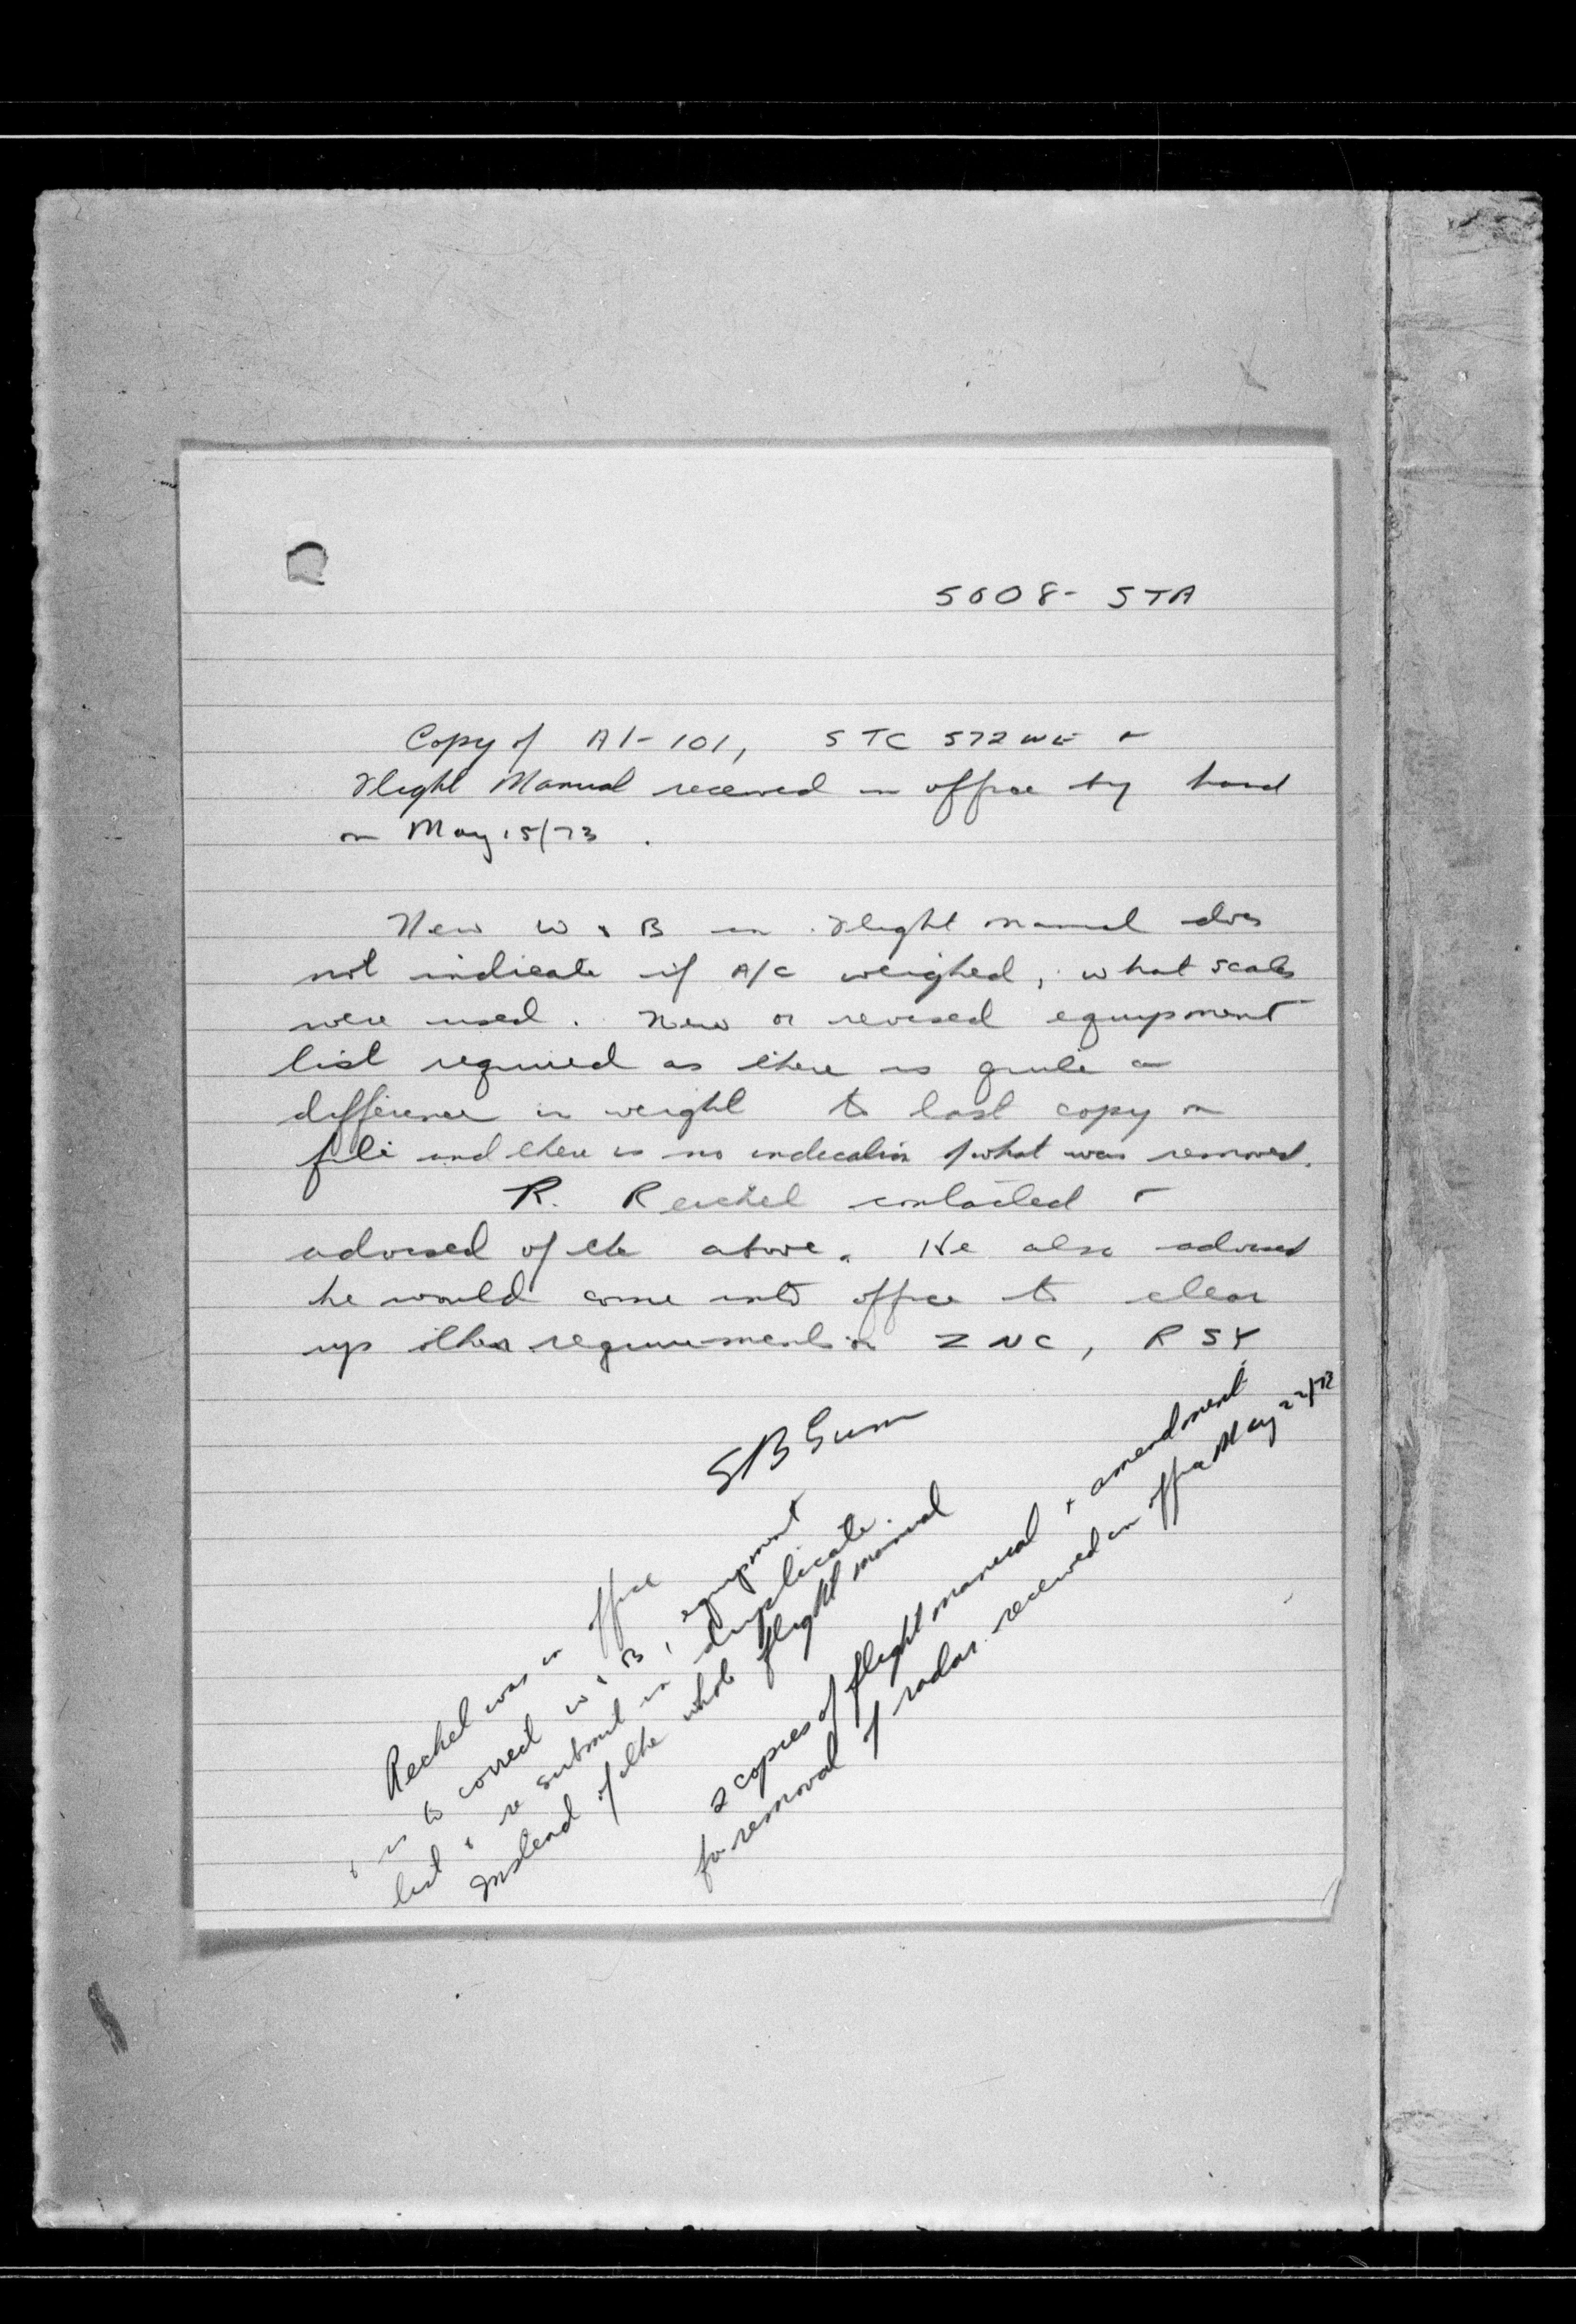 5008- STA
Copy of A1-101, STC 572WE &
Flight Manual received in office by hand
on May 15/73 .
New W & B in Flight manual does
not indicate if A/C weighed, what scales
were used. New or revised equipment
list required as there is quite a
difference in weight to last copy on
file and there is no indication of what was removed.
R. Reichel contacted &
advised of the above. He also advised
he would come into office to clear
up other requirements on ZNC, RSY
Reichel was in office
& is to correct W & B, equipment
list & re submit in duplicate.
Instead of the whole flight manual
2 copies of flight manual & amendment
for removal of radar received in office May 22/73